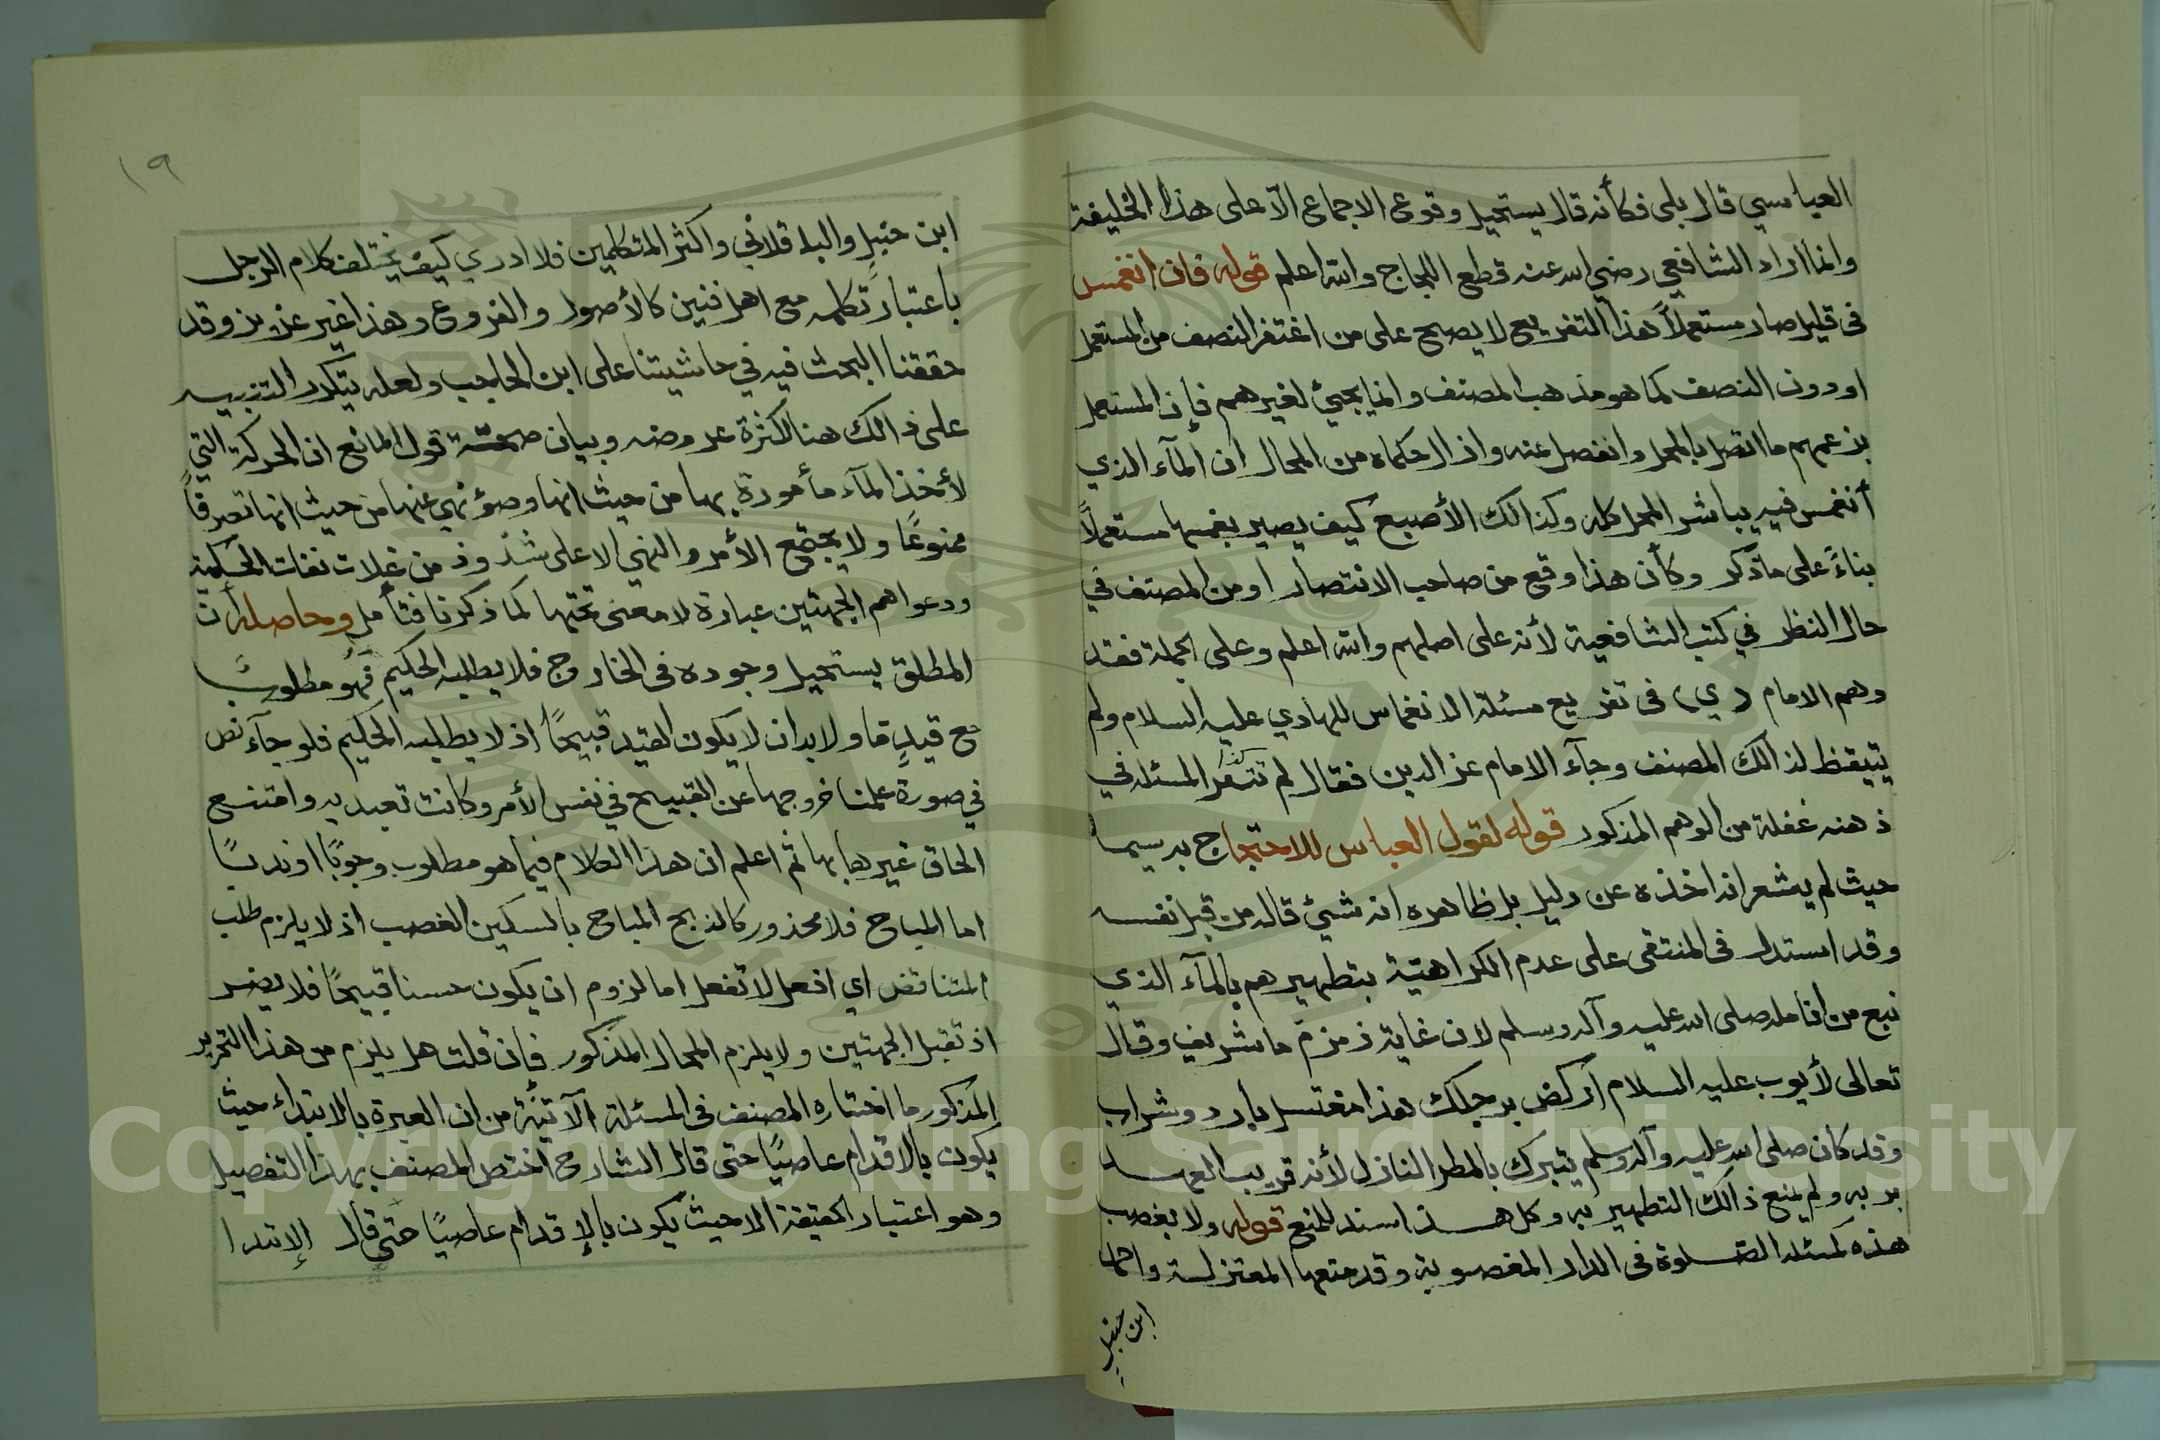 العباسي قال بلى فكأنه قال يستحيل وقوع الاجماع الا على هذا الخليفة
وانما اراد الشافعي رضي الله عنه قطع اللجاج والله اعلم قوله فان انغمس
فى قليل صار مستعملاً هذا التفريع لا يصح على من اغتفر النصف من المستعمل
او دون النصف كما هو مذهب المصنف وانما يجيئ لغيرهم فإن المستعمل
بزعمهم ما اتصل بالمحل وانفصل عنه واذا لحكماه من المحال ان المآء الذي
أنغمس فيه يباشر المحل كله وكذالك الأصبع كيف يصير بغمسها مستعملاً
بناءً على ما ذكر وكأن هذا وقع من صاحب الانتصار او من المصنف في
حال النظر في كتب الشافعية لأنه على اصلهم والله اعلم وعلى الجملة فقد
وهم الامام (ي) فى تفريع مسئلة الانغماس للهادي عليه السلام ولم
يتيقظ لذالك المصنف وجآء الامام عز الدين فقال لم تتقرر المسئله في
ذهنه غفلة من الوهم المذكور قوله لقول العباس للاحتجاج به سيما
حيث لم يشعر انه اخذه عن دليل بل ظاهره انه شيئ قاله من قبل نفسه
وقد استدل فى المنتقى على عدم الكراهية بتطهيرهم بالمآء الذي
نبع من انامله صلى الله عليه وآله وسلم لان غاية زمزم ما شريف وقال
تعالى لأيوب عليه السلام اركض برجلك هذا مغتسل بارد وشراب
وقد كان صلى الله عليه وآله وسلم يتبرك بالمطر النازل لأنه قريب العهد
بربه ولم يمنع ذالك التطهير به وكل هذا سند للمنع قوله ولا بغصب
هذه كمسئله الصلوة فى الدار المغصوبة وقد منعها المعتزلة واحمد
ابن حنبل
١٩
ابن حنبل والباقلاني واكثر المتكلمين فلا ادري كيف يختلف كلام الرجل
باعتبار تكلمه مع اهل فنين كالأصول والفروع وهذا غير عزيز وقد
حققنا البحث فيه في حاشيتنا على ابن الحاجب ولعله يتكرر التنبيه
على ذالك هنا لكثرة عروضه وبيان صحة قول المانع ان الحركة التي
لأخذ المآء مأمورة بها من حيث انها وضؤ نهي عنها من حيث انها تصرفاً
ممنوعًا ولا يجتمع الأمر والنهي الا على شذوذ من نفات الحكمة
ودعواهم الجهتين عبارة لا معنى تحتها كما ذكرنا فتأمل وحاصله أن
المطلق يستحيل وجوده فى الخارج فلا يطلبه الحكيم فهو مطلوبًا
مع قيدٍ ما ولا بد ان لا يكون القيد قبيحًا اذ لا يطلبه الحكيم فلو جآء نص
في صورة علمنا خروجها عن القبيح في نفس الأمر وكانت تعبديه وامتنع
الحاق غيرها بها ثم اعلم ان هذا الكلام فيما هو مطلوب وجوبًا او ندبًا
اما المباح فلا محذور كالذبح المباح بالسكين الغصب اذ لا يلزم طلب
المتناقض اي افعل لا تفعل اما لزوم ان يكون حسنا قبيحًا فلا يضر
اذ تقبل الجهتين ولا يلزم المحال المذكور فان قلت هل يلزم من هذا التحرير
المذكور ما اختاره المصنف فى المسئلة الآتية من ان العبرة بالابتداء حيث
يكون بالاقدام عاصيًا حتى قال الشارح اختص المصنف بهذا التفصيل
وهو اعتبار الحقيقة الا حيث يكون بالإقدام عاصيًا حتى قال الإبتدا
Copyright © King Saud University